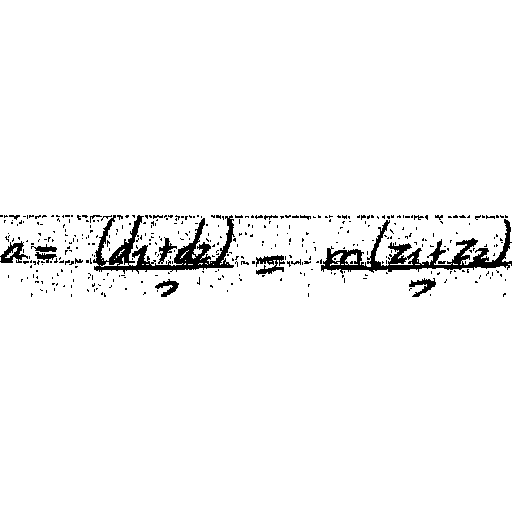 a = (d1+d2)/2 = m(z1+z2)/2